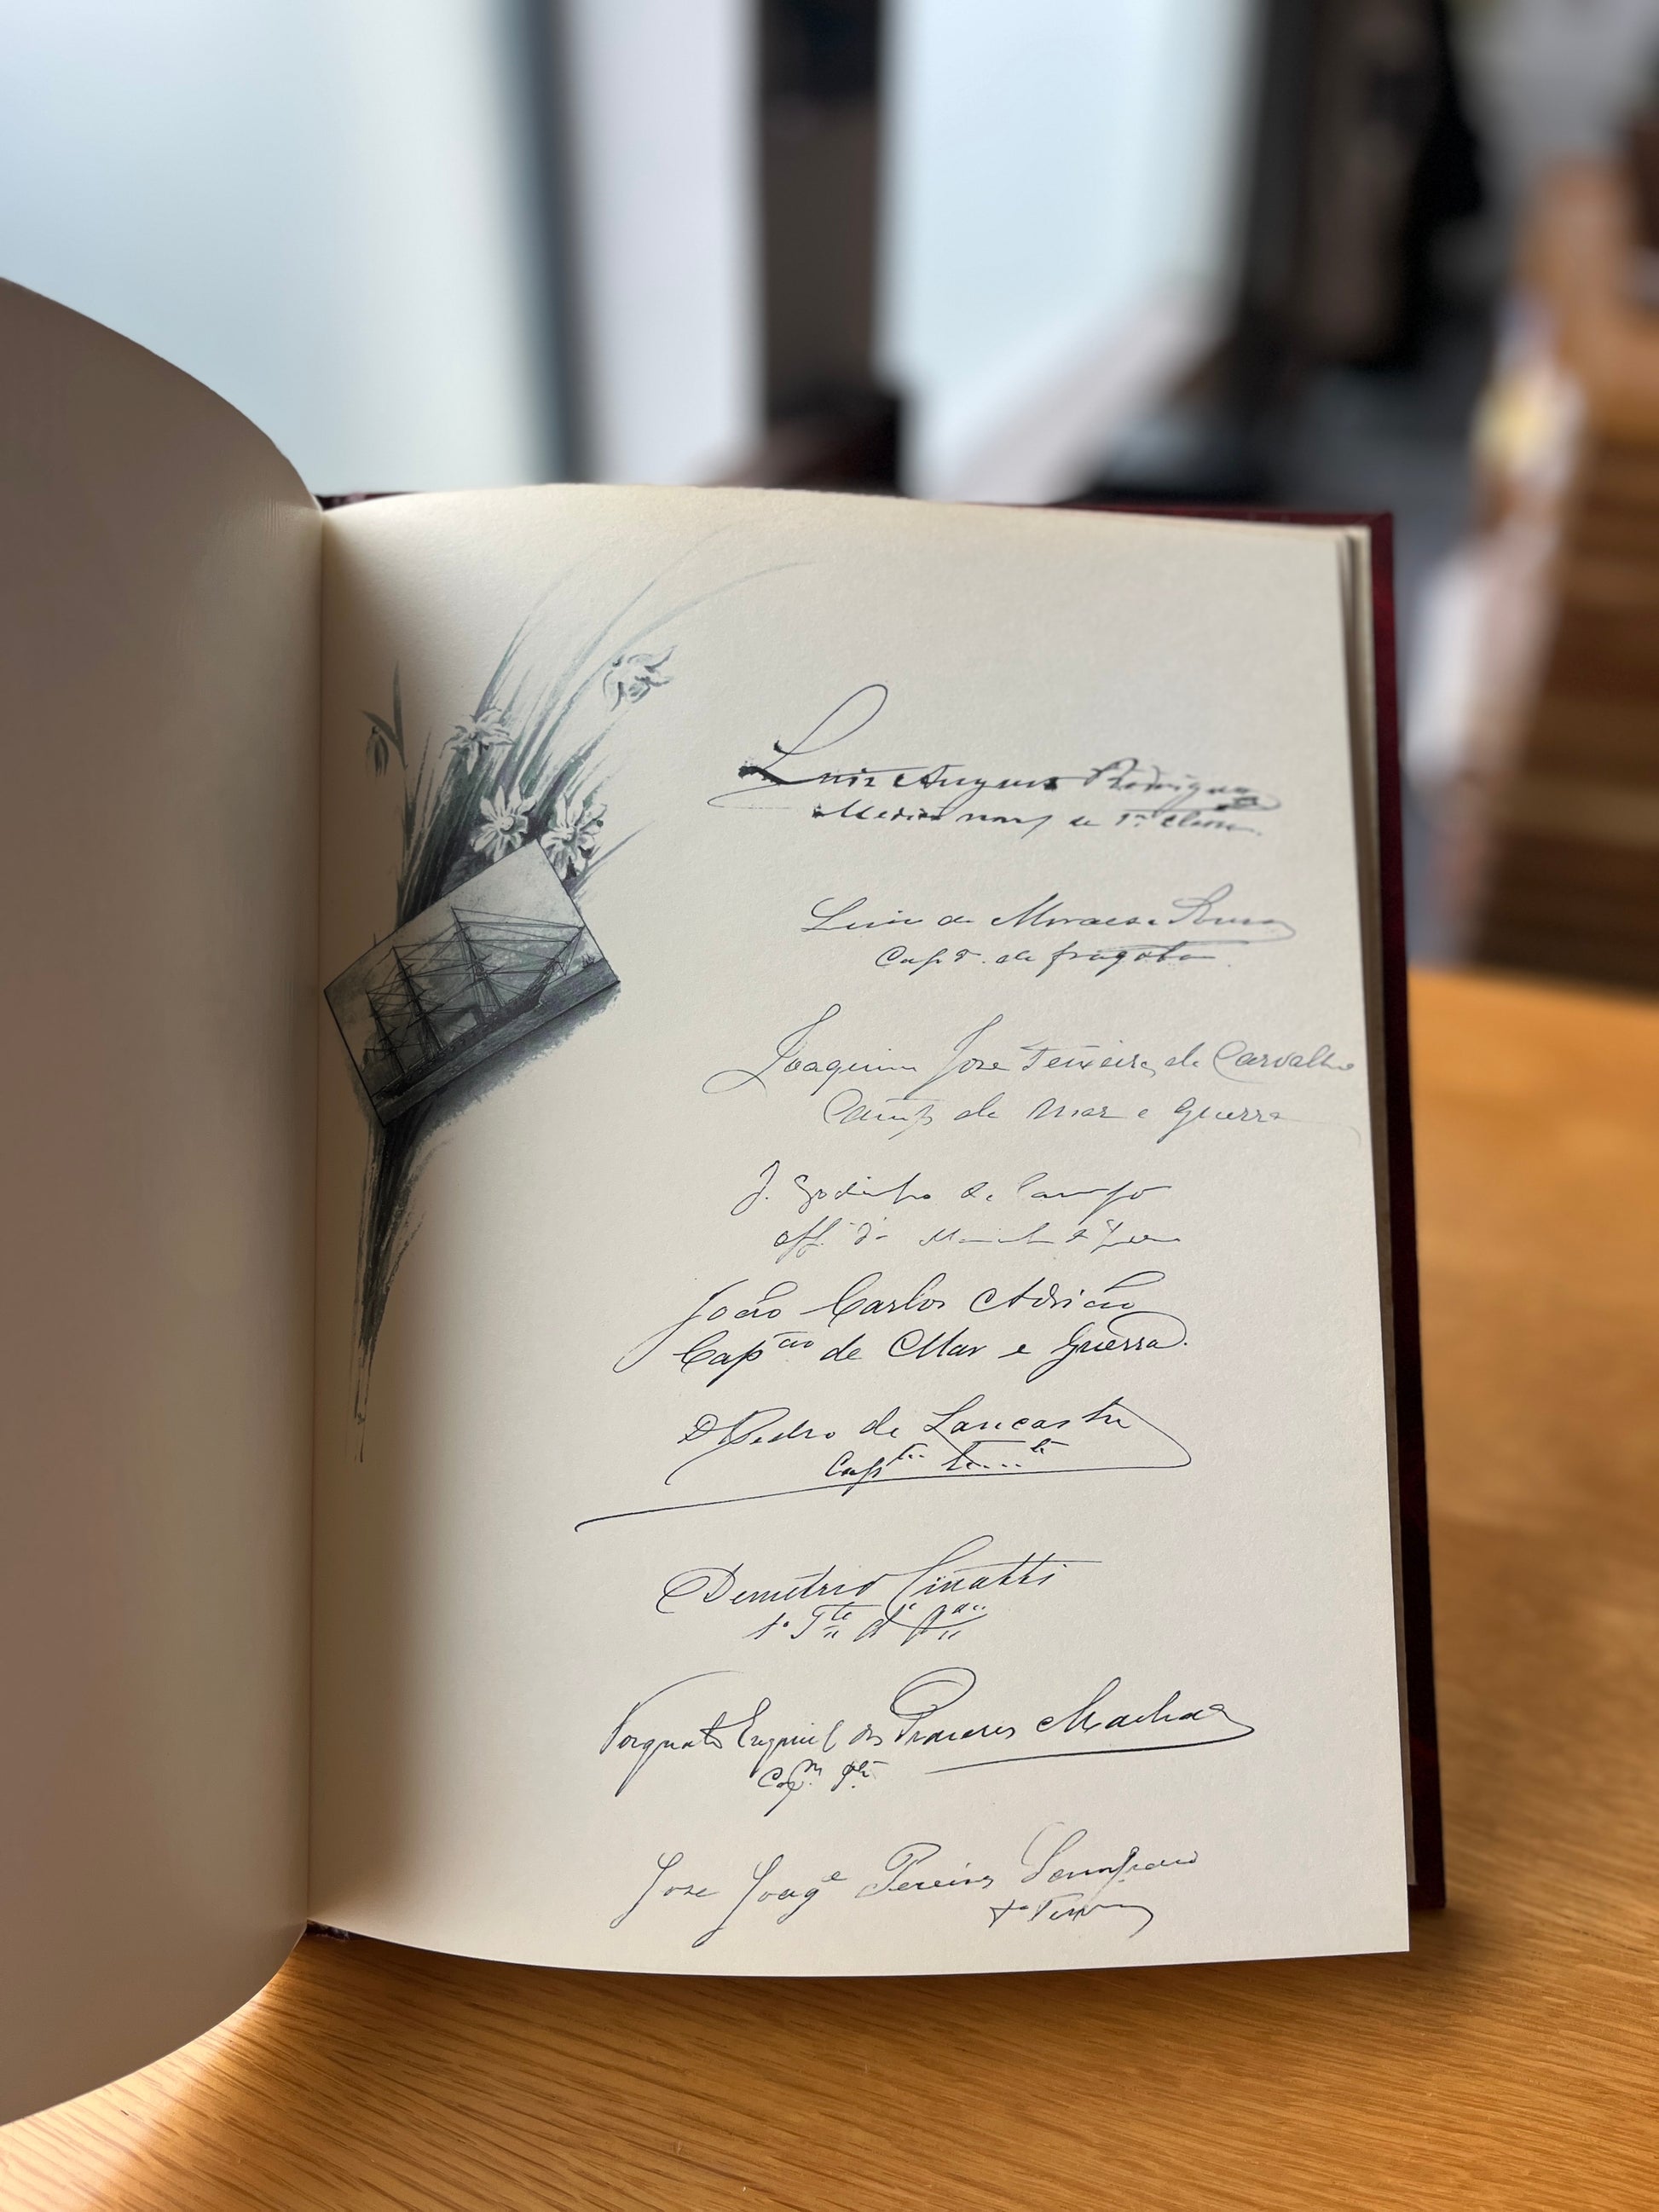 Luiz Augusto Rodrigues
Medico nav de 1ª classe
Luiz de Moraes e Sousa
Cap.ᵐ de fragata
Joaquim José Teixeira de Carvalho
de Mar e Guerra
J. Godinho de Campos
off. da
João Carlos Adrião
Capᵗᵃᵒ de Mar e Guerra.
D Pedro de Lancastre
Demetrio Cinatti
1º Tᵗᵉ d'
Torquato Ezequiel dos Prazeres Machado
José Joaqᵉ Pereira